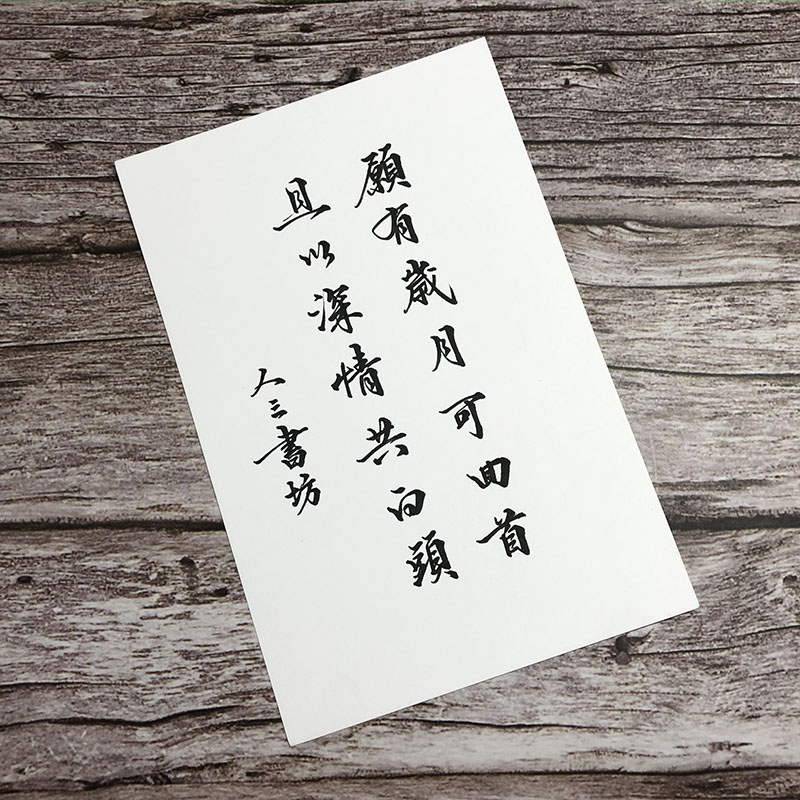 願有歲月可回首
且以深情共白頭
人三書坊